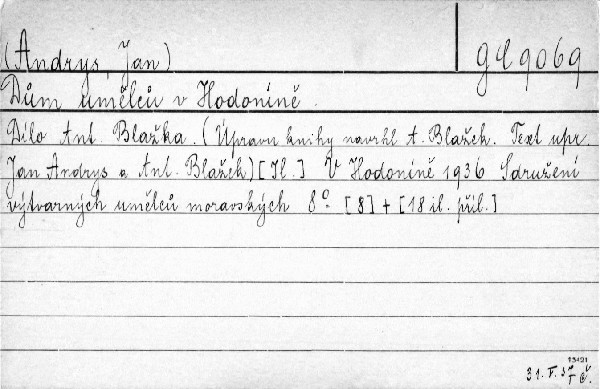 (Andrys, Jan) GC 9069
Dům umělců v Hodoníně.
Dílo Ant. Blažka. (Úpravu knihy navrhl A. Blažek. Text upr.
Jan Andrys a Ant. Blažek) [Il.] V Hodoníně 1936 Sdružení
výtvarných umělců moravských 8° [8] + [18 il. příl.]
13421
31. V.